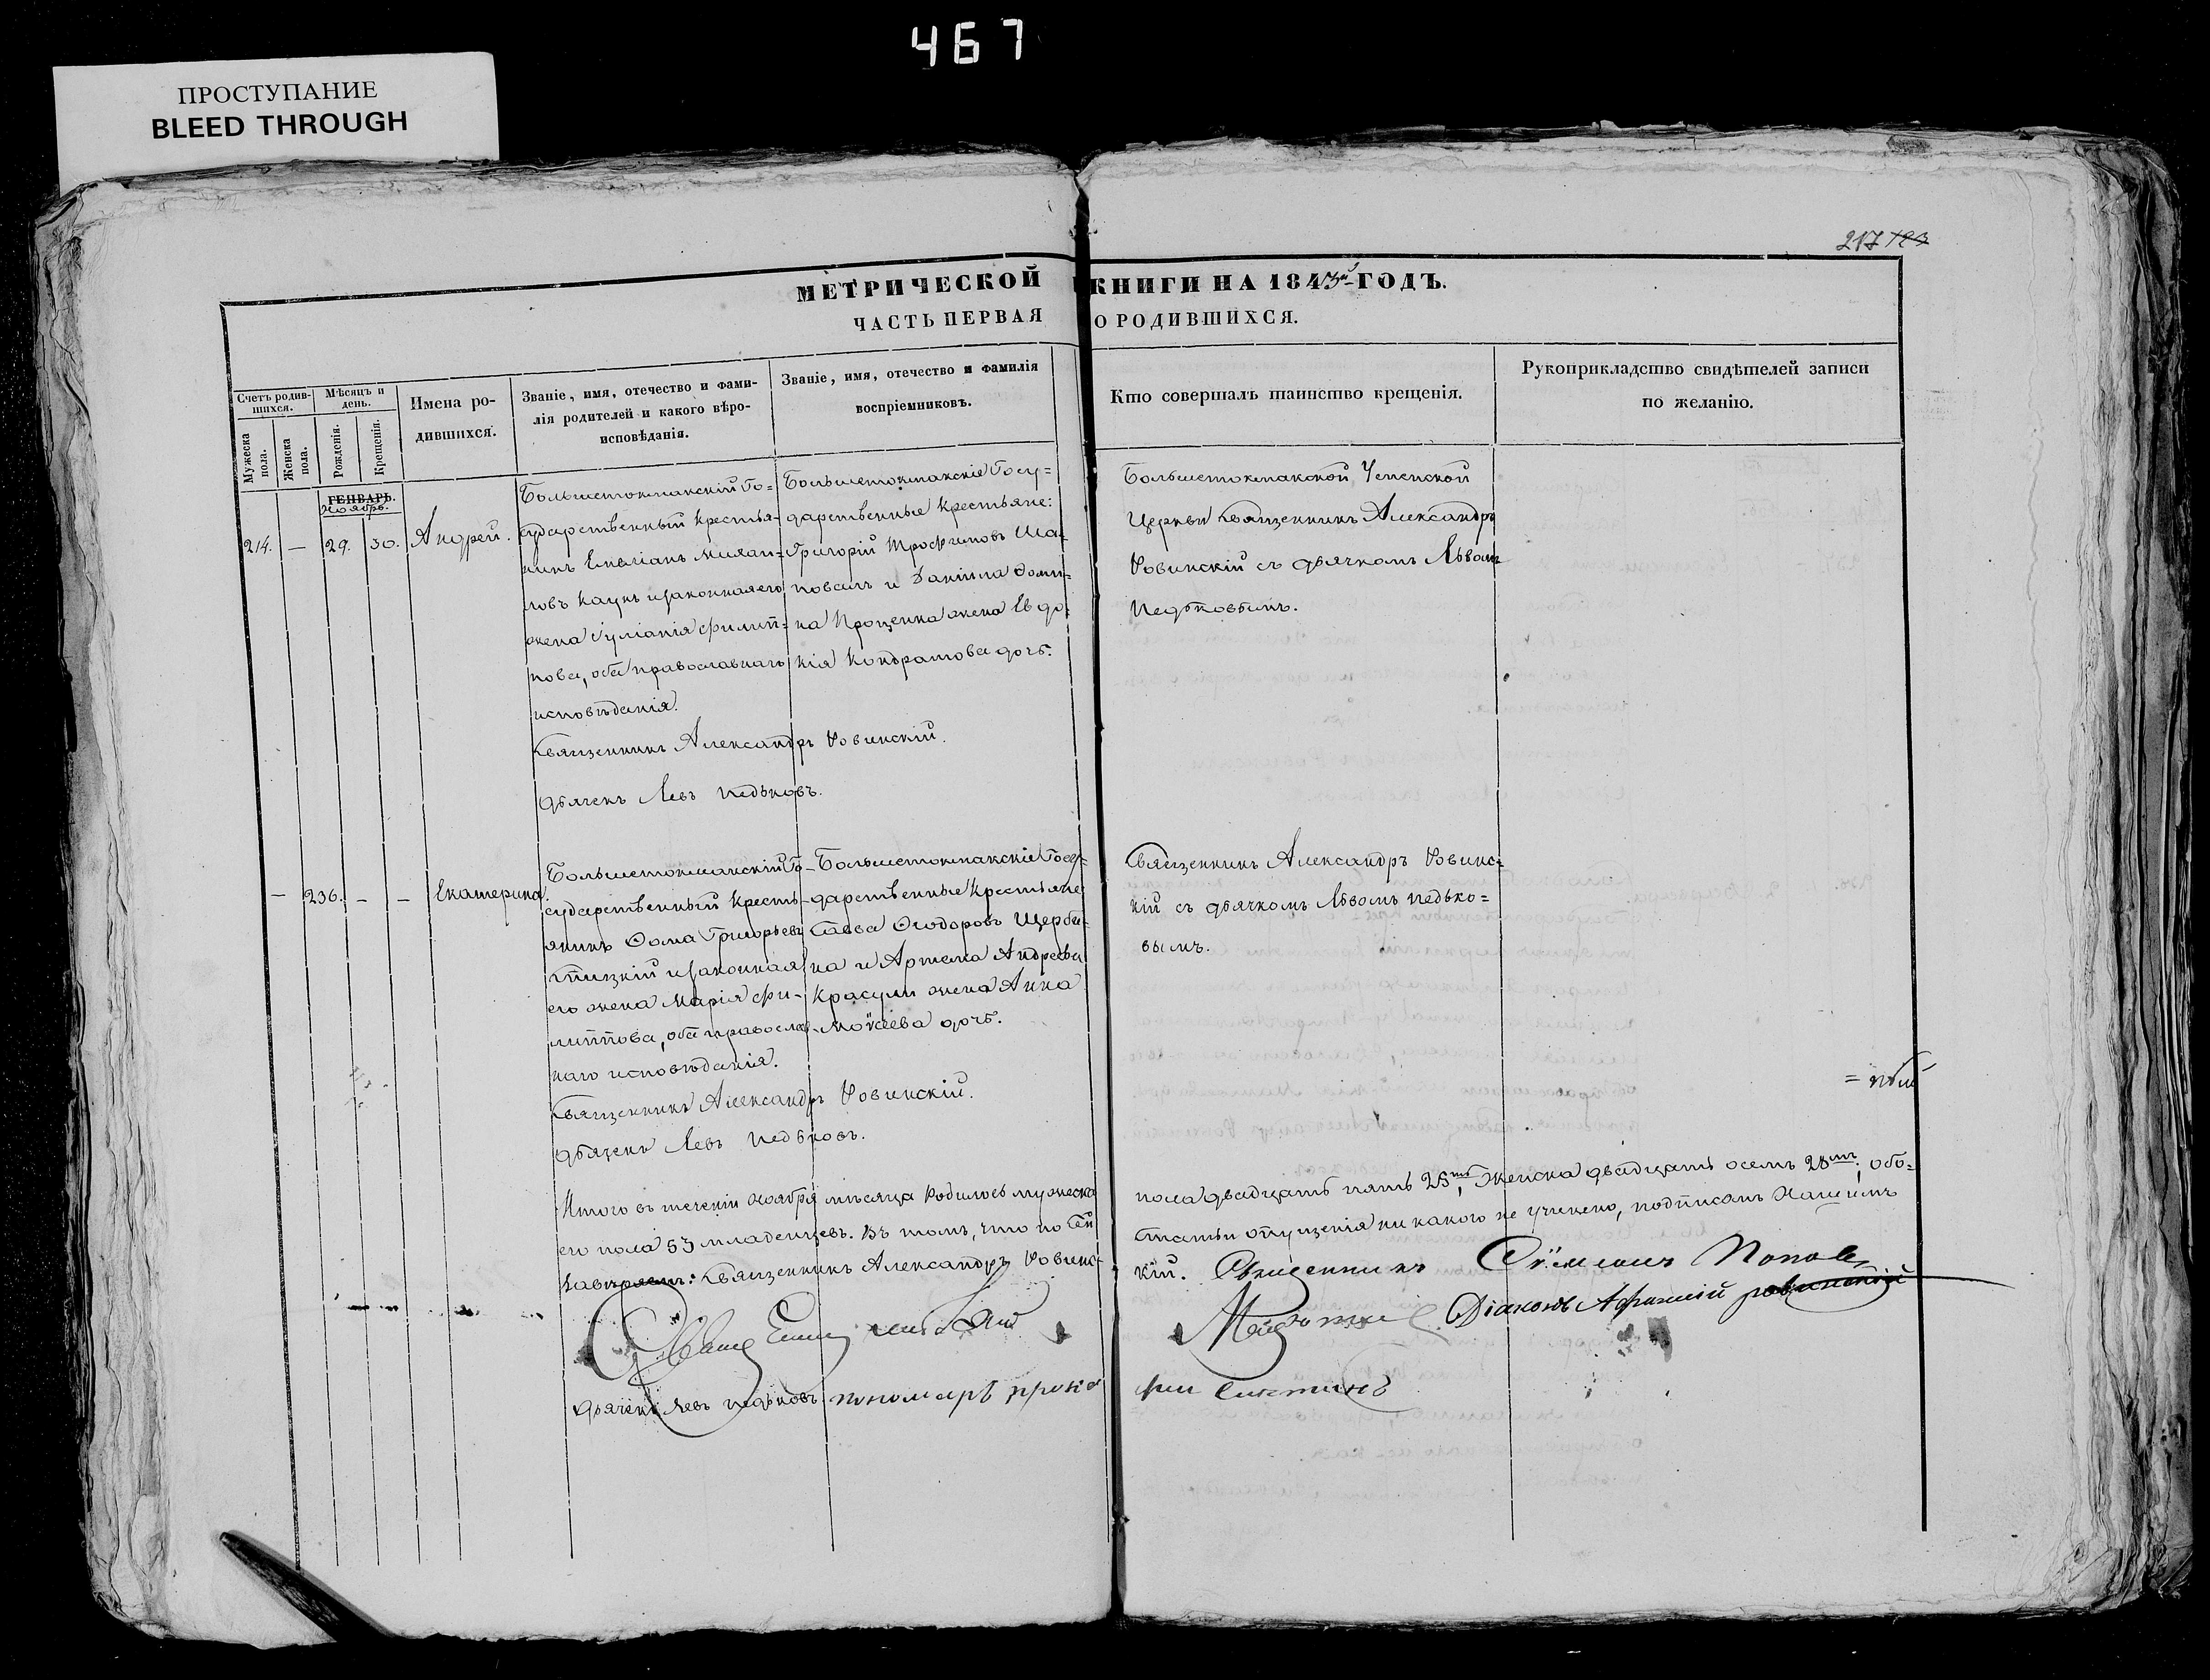 467
ПРОСТУПАНИЕ
BLEED THROUGH
217
МЕТРИЧЕСКОЙ КНИГИ НА 1843й ГОДЪ.
ЧАСТЬ ПЕРВАЯ О РОДИВШИХСЯ.
Счетъ родив-
шихся.
Мужеска пола.
Женска пола.
Мѣсяцъ и
день.
Рожденія.
Крещенія.
Имена ро-
дившихся.
Званіе, имя, отечество и фами-
лія родителей и какого вѣро-
исповѣданія.
Званіе, имя, отечество и фамилія
воспріемниковъ.
Кто совершалъ таинство крещенія.
Рукоприкладство свидѣтелей записи
по желанію.
ГЕНВАРЬ.
Ноябрь.
214. — 29. 30. Андрей.
Большетокмакскій Го-
сударственный крестья-
нинъ Емеліанъ
и законная его
жена Іуліанія Филип-
пова, оба православнаго
исповѣданія.
Священникъ Александръ Ровинскій.
Дьячекъ Левъ Педьковъ.
Большетокмакскіе Госу-
дарственные Крестьяне:
Григорій Трофимовъ Ша-
поваль и Даніила Доми-
на Проценка жена Евдо-
кія Кондратова дочь.
Большетокмакской Успенской
Церкви Священникъ Александръ
Ровинскій съ дьячкомъ Львомъ
Педьковымъ.
— 236. — — Екатерина.
Большетокмакскій Го-
сударственный Кресть-
янинъ Фома Григорьевъ
и законная
его жена Марія Фи-
липпова, оба православ-
наго исповѣданія.
Священникъ Александръ Ровинскій.
Дьячекъ Левъ Педьковъ.
Большетокмакскіе Госу-
дарственные Крестьяне
Савва Ѳеодоровъ Щерби-
на и Артема Андреева
Красули жена Анна
Моѵсеева дочь.
Священникъ Александръ Ровинс-
кій съ дьячкомъ Львомъ Педько-
вымъ.
Итого въ теченіи Ноября мѣсяца родилось мужеска
пола двадцать пять 25ть, Женска двадцать осемъ 28мь, обо-
его пола 53 младенцевъ. Въ томъ, что по сей
статьи опущенія ни какого не учинено, подписомъ Нашимъ
Завѣряемъ: Священникъ Александръ Ровинс-
кій. Священникъ Поповъ
Діаконъ Афанасій Ровинскій
Дьячекъ Левъ Педьковъ пономарь Проко-
фій